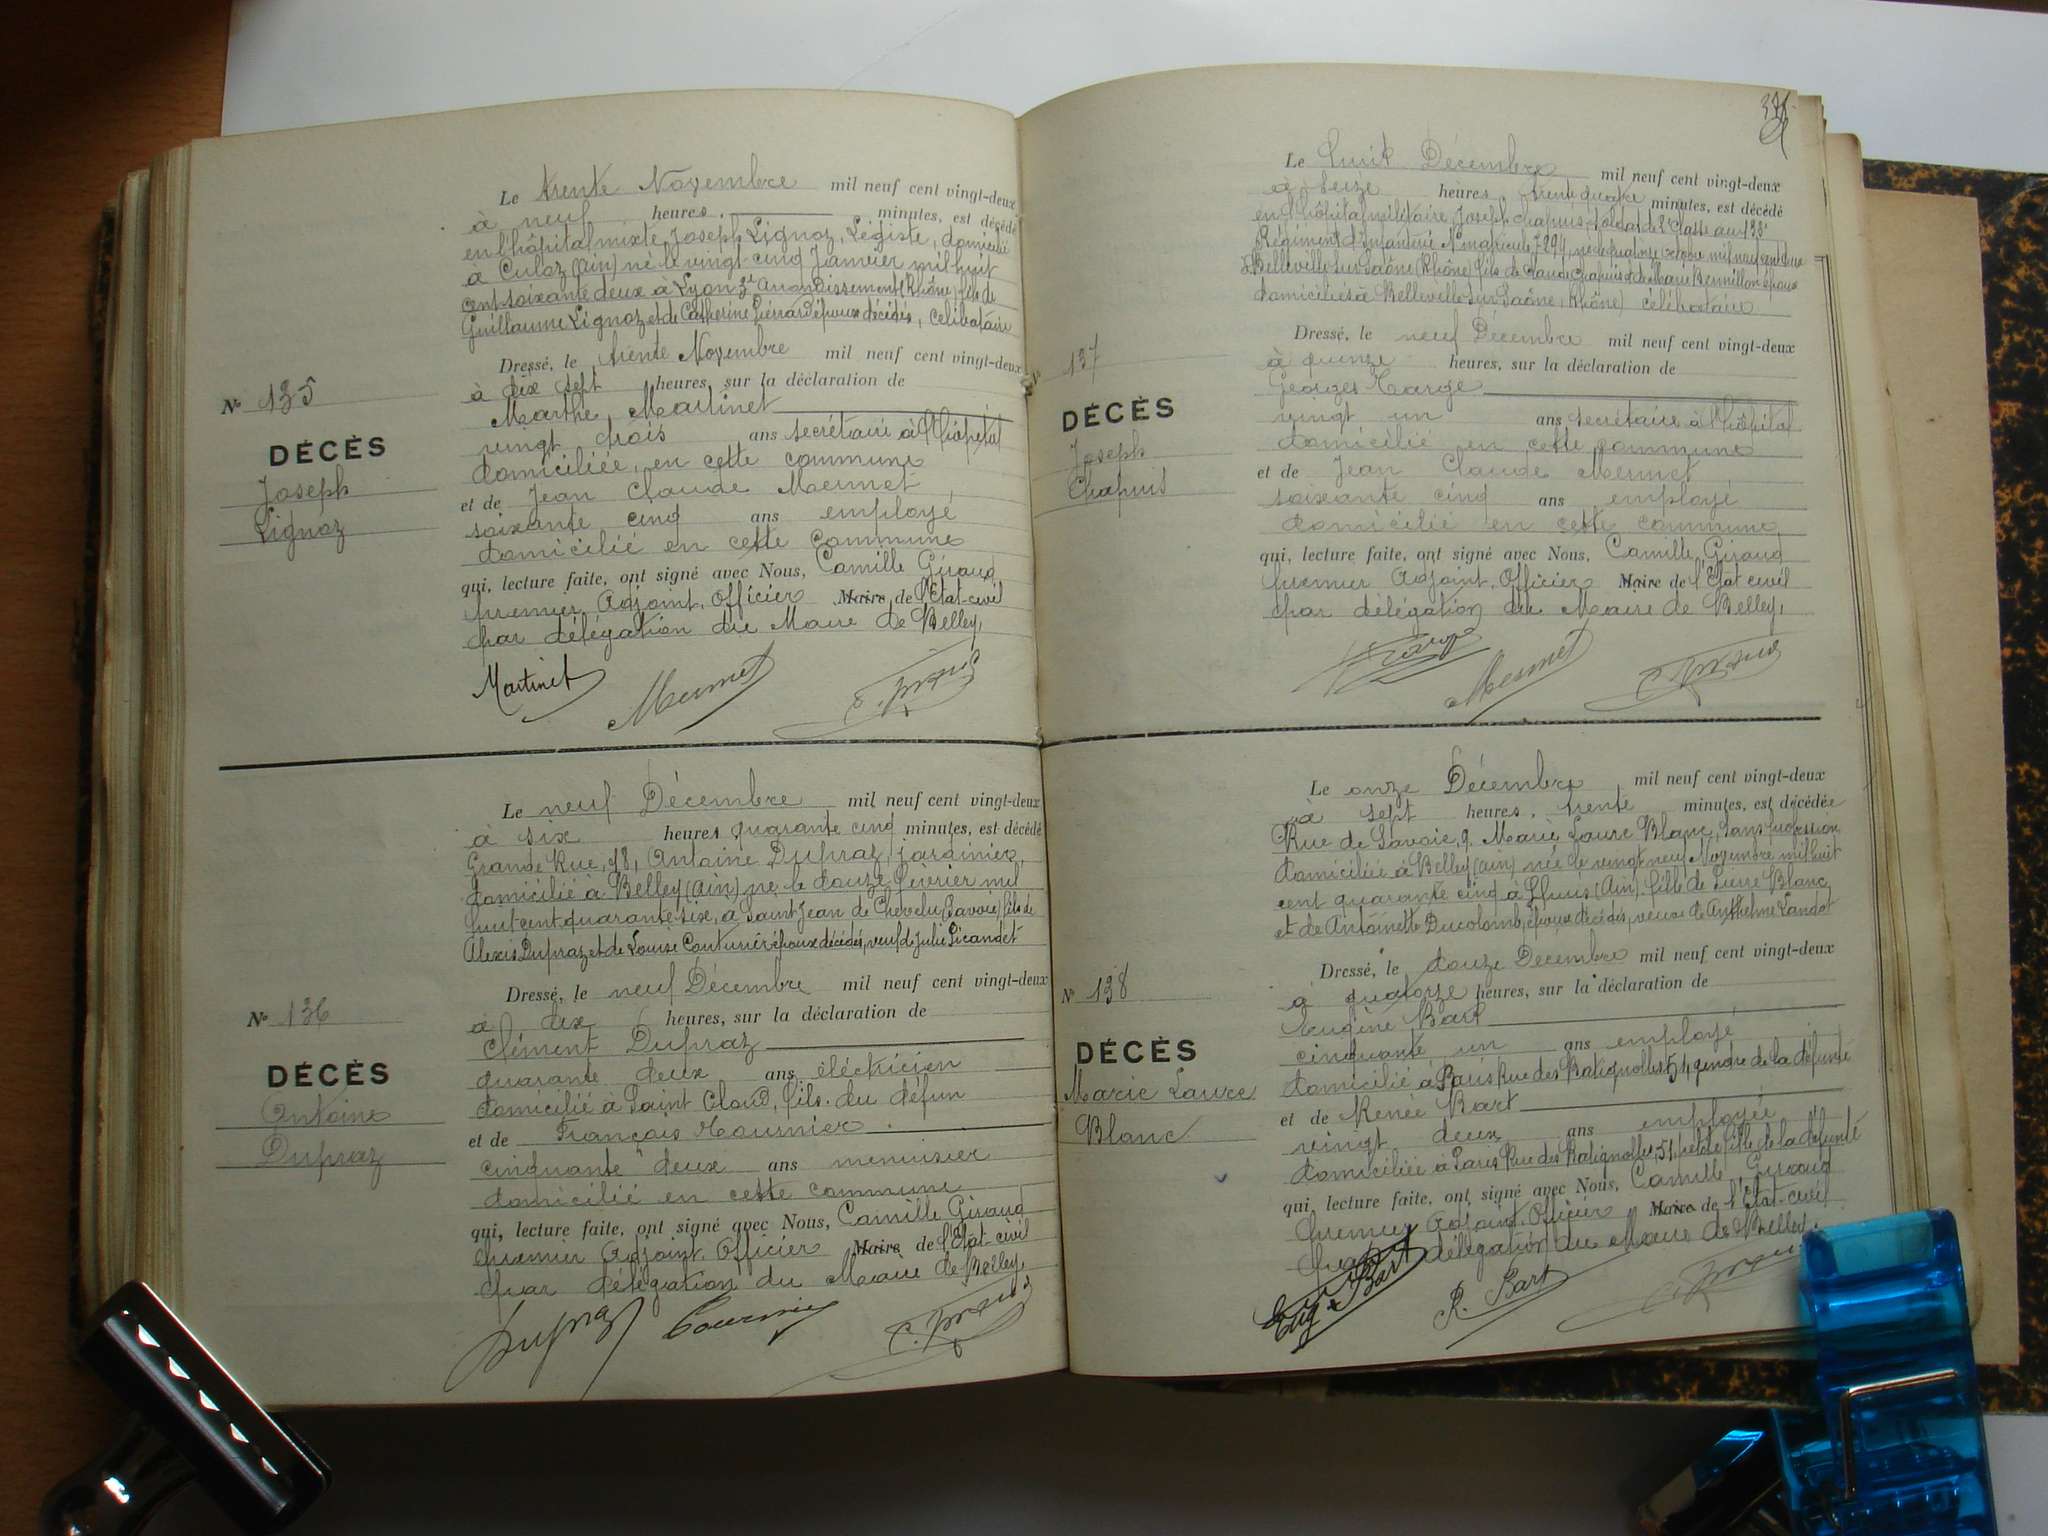 Le trente Novembre mil neuf cent vingt-deux
à neuf heures, minutes, est décédé
en l'hôpital mixte Joseph Lignoz, Légiste, domicilié
à Culoz (Ain) né le vingt-cinq Janvier mil huit
cent soixante deux à Lyon 3e Arrondissement (Rhône) fils de
Guillaume Lignoz et de Catherine époux décédés, célibataire
Dressé, le trente Novembre mil neuf cent vingt-deux
à dix sept heures, sur la déclaration de
Marthe Martinet
vingt trois ans secrétaire à l'hôpital
domiciliée en cette commune
et de Jean Claude Mermet
soixante cinq ans employé
domicilié en cette commune
qui, lecture faite, ont signé avec Nous, Camille Giraud
premier Adjoint, Officier Maire de l'Etat-civil
par délégation du Maire de Belley,
Martinet Mermet
No 135
DÉCÈS
Joseph
Lignoz
Le neuf Décembre mil neuf cent vingt-deux
à six heures quarante cinq minutes, est décédé
Grande Rue, 98, Antoine Dupraz, jardinier,
domicilié à Belley (Ain) né le douze février mil
huit cent quarante-six, à Saint Jean de Chevelu (Savoie) fils de
Alexis Dupraz et de Louise Couturier époux décédés, veuf de Julie Picandet
Dressé, le neuf Décembre mil neuf cent vingt-deux
à dix heures, sur la déclaration de
Clément Dupraz
quarante deux ans éléctricien
domicilié à Saint Cloud, fils du défun
et de François Tournier
cinquante deux ans menuisier
domicilié en cette commune
qui, lecture faite, ont signé avec Nous, Camille Giraud
premier Adjoint, Officier Maire de l'Etat-civil
par délégation du Maire de Belley,
Dupraz Tournier
No 136
DÉCÈS
Antoine
Dupraz
Le huit Décembre mil neuf cent vingt-deux
à seize heures, trente quatre minutes, est décédé
en l'hôpital militaire, Joseph Chapuis, soldat de 2e Classe au 133e
Régiment d'Infanterie No matricule 7294, né le quatorze octobre mil neuf cent deux
à Belleville sur Saône (Rhône) fils de Claude Chapuis et de Marie Bernillon époux
domiciliés à Belleville sur Saône (Rhône) célibataire
Dressé, le neuf Décembre mil neuf cent vingt-deux
à quinze heures, sur la déclaration de
Georges Targe
vingt un ans secrétaire à l'hôpital
domicilié en cette commune
et de Jean Claude Mermet
soixante cinq ans employé
domicilié en cette commune
qui, lecture faite, ont signé avec Nous, Camille Giraud
premier Adjoint, Officier Maire de l'Etat civil
par délégation du Maire de Belley,
Targe Mermet
No 137
DÉCÈS
Joseph
Chapuis
Le onze Décembre mil neuf cent vingt-deux
à sept heures, trente minutes, est décédée
Rue de Savoie, 9, Marie Laure Blanc, sans profession
domiciliée à Belley (Ain) née le vingt neuf Novembre mil huit
cent quarante cinq à Lhuis (Ain) fille de Pierre Blanc
et de Antoinette Ducolomb, époux décédés, veuve de Anthelme Landot
Dressé, le douze Décembre mil neuf cent vingt-deux
à quatorze heures, sur la déclaration de
Eugène Bart
cinquante un ans employé
domicilié à Paris Rue des Batignolles 51, gendre de la défunte
et de Renée Bart
vingt deux ans employée
domiciliée à Paris Rue des Batignolles, 51, petite fille de la défunte
qui, lecture faite, ont signé avec Nous, Camille Giraud
premier Adjoint, Officier Maire de l'Etat-civil
par délégation du Maire de Belley.
Eug Bart R. Bart
No 138
DÉCÈS
Marie Laure
Blanc